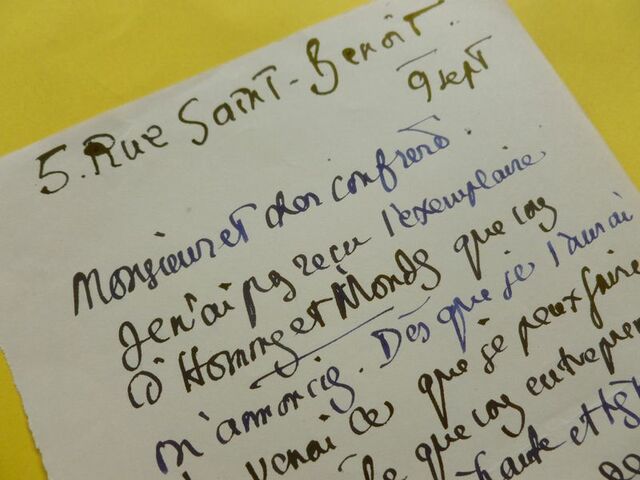 5. Rue Saint-Benoît.
9 sept
Monsieur et cher confrère.
Je n'ai pas reçu l'exemplaire
d'Hommes et Mondes que vous
m'annoncez. Dès que je l'aurai
verrai ce que je peux faire
que vous
haute et